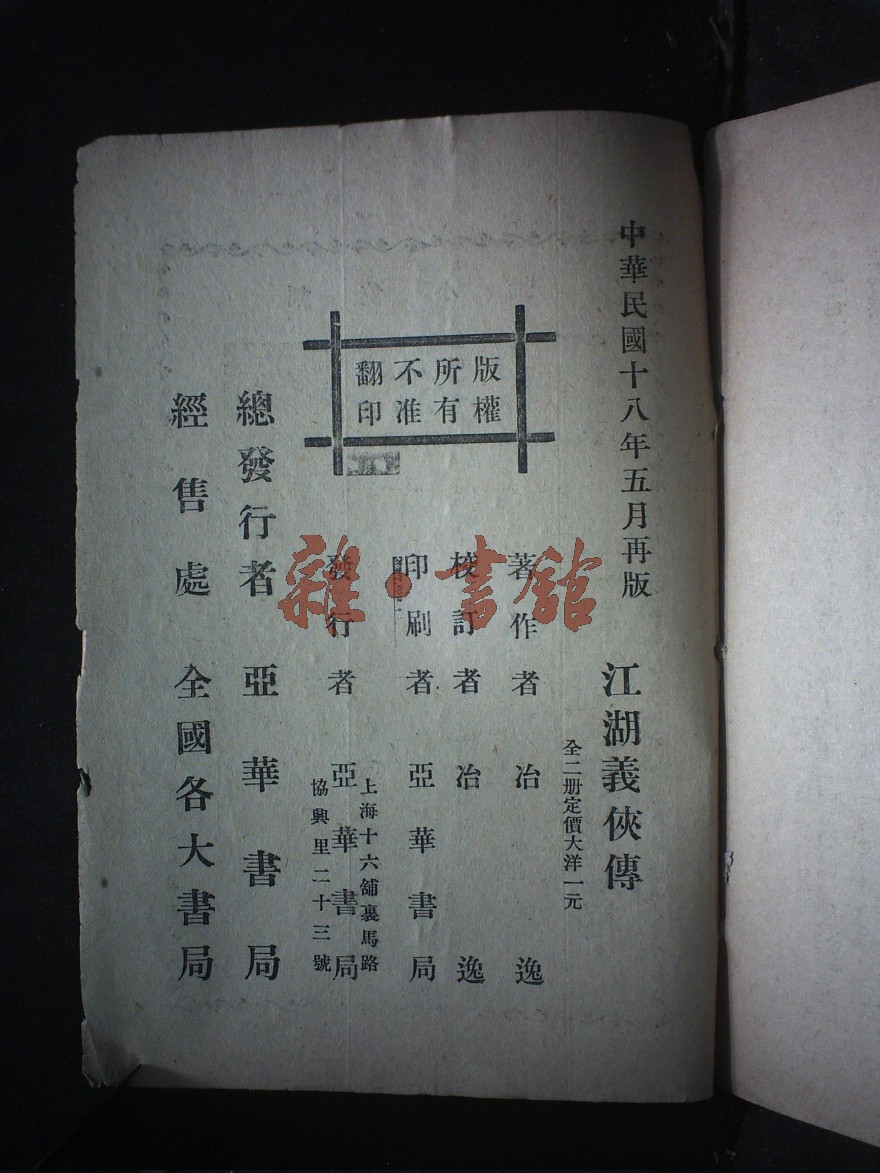 中華民國十八年五月再版
江湖義俠傳
全二册定價大洋一元
著作者 冶逸
校訂者 冶逸
印刷者 亞華書局
發行者 亞華書局
上海十六舖裏馬路
協興里二十三號
版權
所有
不准
翻印
總發行者 亞華書局
經售處 全國各大書局
雜·書館